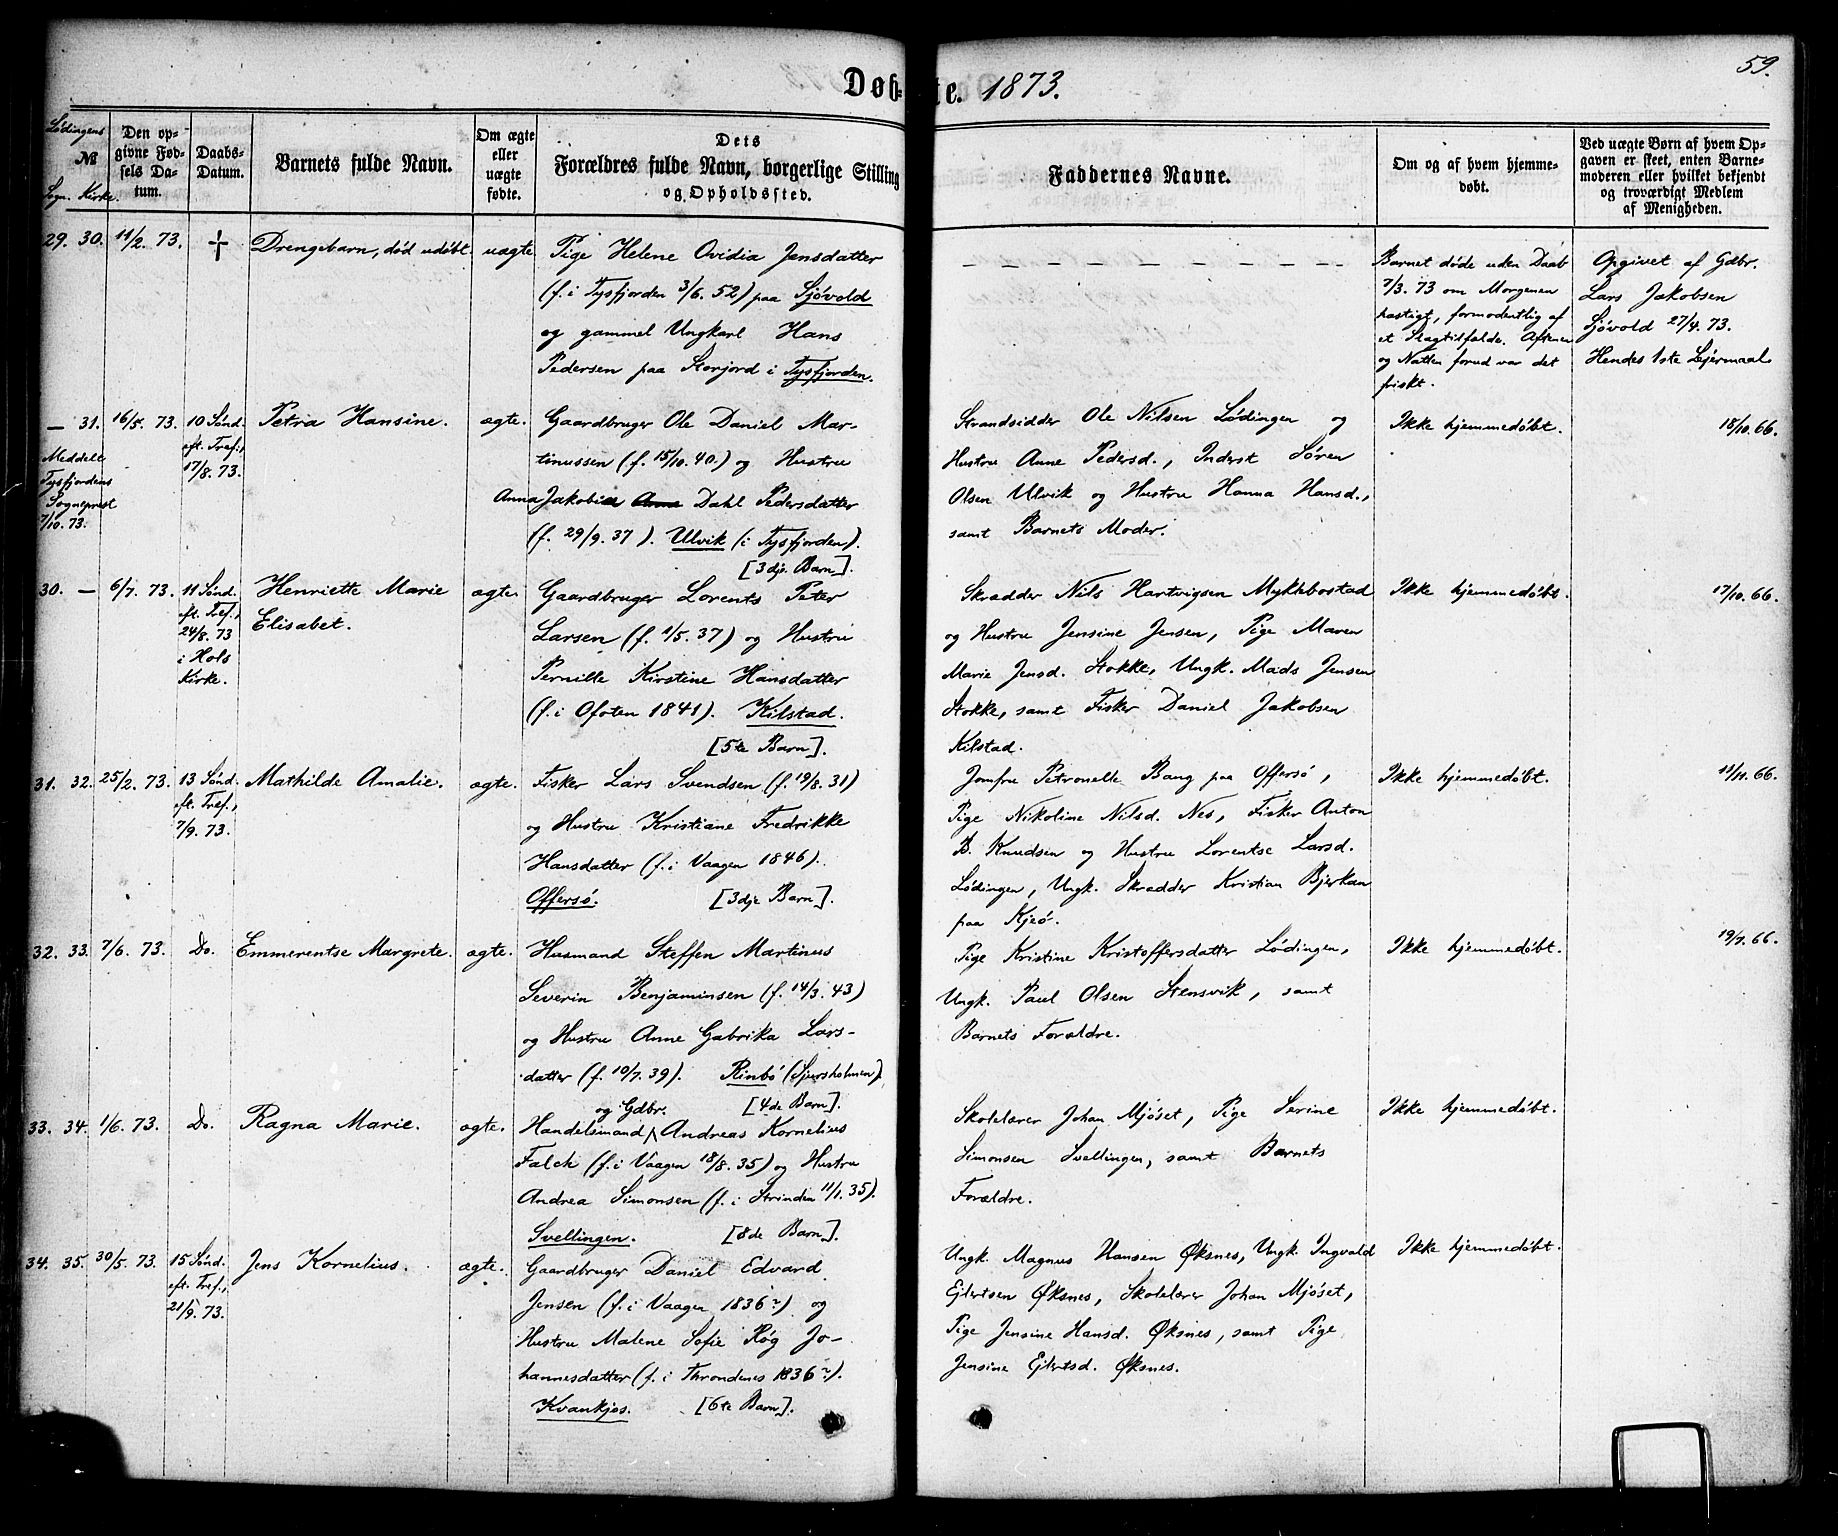 Døbte. 1873.
59.
Lødingens
№
Sogn. Kirke.
Den op-
givne Fød-
sels Da-
tum.
Daabs-
Datum.
Barnets fulde Navn.
Om ægte
eller
uægte
fødte.
Dets
Forældres fulde Navn, borgerlige Stilling
og Opholdssted.
Faddernes Navne.
Om og af hvem hjemme-
døbt.
Ved uægte Børn af hvem Op-
gaven er skeet, enten Barne-
moderen eller hvilket bekjendt
og troværdigt Medlem
af Menigheden.
29. 30. 11/2. 73. † Drengebarn, død udøbt. uægte
Pige Helene Ovidia Jensdatter
(f. i Tysfjorden 3/6. 52) paa Sjövold
og gammel Ungkarl Hans
Pedersen paa Storjord i Tysfjorden.
Barnet døde uden Daab
7/3. 73 om Morgenen
hastigt, formodentlig af
et Slagtilfælde. Aftenen
og Natten forud var det
friskt.
Opgivet af Gdbr.
Lars Jakobsen
Sjövold 27/4. 73.
Hendes 1ste Lejermaal
— 31. 16/5. 73.
Meddelt
Tysfjordens
Sogneprest
7/10. 73.
10 Sönd.
eft. Tref.,
17/8. 73.
Petra Hansine. ægte.
Gaardbruger Ole Daniel Mar-
tinussen (f. 15/10. 40.) og Hustru
Anna Jakobia Anna Dahl Pedersdatter
(f. 29/9. 37). Ulvik (i Tysfjorden).
[3dje Barn].
Strandsidder Ole Nilsen Lödingen og
Hustru Anne Pedersd., Inderst Sören
Olsen Ulvik og Hustru Hanna Hansd.,
samt Barnets Moder.
Ikke hjemmedöbt.
18/10. 66.
30. — 6/7. 73.
11 Sönd.
eft. Tref.,
24/8. 73
i Hols
Kirke.
Henriette Marie
Elisabet.
ægte.
Gaardbruger Lorents Peter
Larsen (f. 1/5. 37) og Hustru
Pernille Kirstine Hansdatter
(f. i Ofoten 1841). Kilstad.
[5te Barn].
Skrædder Nils Hartvigsen Myklebostad
og Hustru Jensine Jensen, Pige Maren
Marie Jensd. Stokke, Ungk. Mads Jensen
Stokke, samt Fisker Daniel Jakobsen
Kilstad.
Ikke hjemmedöbt.
17/10. 66.
31. 32. 25/2. 73.
13 Sönd.
eft. Tref.,
7/9. 73.
Mathilde Amalie. ægte.
Fisker Lars Svendsen (f. 19/8. 31)
og Hustru Kristiane Fredrikke
Hansdatter (f. i Vaagen 1846).
Offersö. [3dje Barn].
Jomfru Petronelle Bang paa Offersö,
Pige Nikoline Nilsd. Nes, Fisker Anton
B. Knudsen og Hustru Lorentse Larsd.
Lödingen, Ungk. Skrædder Kristian Bjerkan
paa Kjeö.
Ikke hjemmedöbt.
11/11. 66.
32. 33. 7/6. 73. Do. Emmerentse Margrete. ægte.
Husmand Steffen Martinus
Severin Benjaminsen (f. 14/3. 43)
og Hustru Anne Gabrika Lars-
datter (f. 10/7. 39). Rinbö (Sjursholmen).
[4de Barn].
Pige Kristine Kristoffersdatter Lödingen,
Ungk. Paul Olsen Stensvik, samt
Barnets Forældre.
Ikke hjemmedöbt.
19/7. 66.
33. 34. 1/6. 73. Do. Ragna Marie. ægte.
og Gdbr.
Handelsmand Andreas Kornelius
Falch (f. i Vaagen 18/8. 35) og Hustru
Andrea Simonsen (f. i Strinden 11/1. 35).
Svellingen. [8de Barn].
Skolelærer Johan Mjöset, Pige Serine
Simonsen Svellingen, samt Barnets
Forældre.
Ikke hjemmedöbt.
34. 35. 30/5. 73.
15 Sönd.
eft. Tref.,
21/9. 73.
Jens Kornelius. ægte.
Gaardbruger Daniel Edvard
Jensen (f. i Vaagen 1836?) og
Hustru Malene Sofie Røg Jo-
hannesdatter (f. i Throndenes 1836?).
Kvankjos. [6te Barn].
Ungk. Magnus Hansen Øksnes, Ungk. Ingvald
Ejlertsen Øksnes, Skolelærer Johan Mjöset,
Pige Jensine Hansd. Øksnes, samt Pige
Jensine Ejlertsd. Øksnes.
Ikke hjemmedöbt.